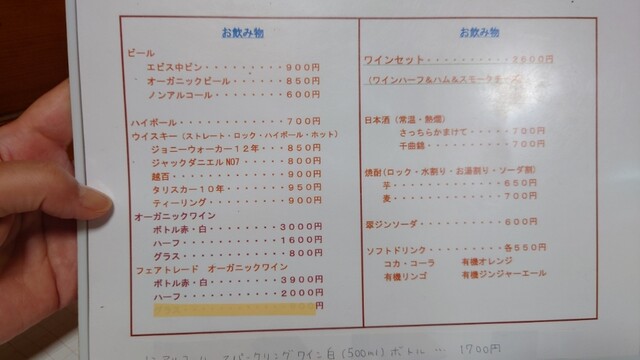 お飲み物
ビール
エビス中ビン・・・・・・・・・９００円
オーガニックビール・・・・・・８５０円
ノンアルコール・・・・・・・・６００円
ハイボール・・・・・・・・・・・７００円
ウイスキー（ストレート・ロック・ハイボール・ホット）
ジョニーウォーカー１２年・・・８５０円
ジャックダニエル NO7・・・・・８００円
越百・・・・・・・・・・・・・９００円
タリスカー１０年・・・・・・・９５０円
ティーリング・・・・・・・・・９００円
オーガニックワイン
ボトル赤・白・・・・・・・・３０００円
ハーフ・・・・・・・・・・・１６００円
グラス・・・・・・・・・・・・８００円
フェアトレード　オーガニックワイン
ボトル赤・白・・・・・・・・３９００円
ハーフ・・・・・・・・・・・２０００円
円
お飲み物
ワインセット・・・・・・・・・・２６００円
（ワインハーフ＆ハム＆スモークチーズ
日本酒（常温・熱燗）
さっちらかまけて・・・・・７００円
千曲錦・・・・・・・・・・７００円
焼酎(ロック・水割り・お湯割り・ソーダ割)
芋・・・・・・・・・・・・・６５０円
麦・・・・・・・・・・・・・７００円
翠ジンソーダ・・・・・・・・・・６００円
ソフトドリンク・・・・・・・・・各５５０円
コカ・コーラ　　有機オレンジ
有機リンゴ　　有機ジンジャーエール
ノンアルコール スパークリングワイン白(500ml)ボトル … 1700円